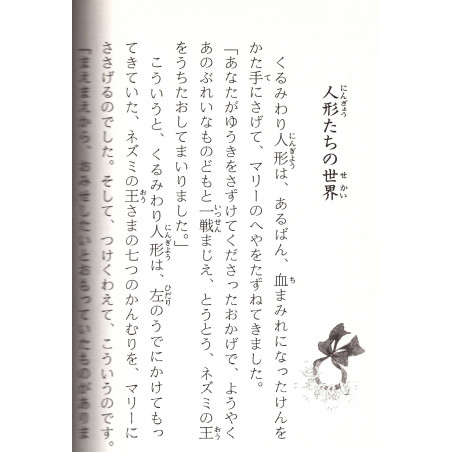 人形たちの世界
くるみわり人形は、あるばん、血まみれになったけんを
かた手にさげて、マリーのへやをたずねてきました。
「あなたがゆうきをさずけてくださったおかげで、ようやく
あのぶれいなものどもと一戦まじえ、とうとう、ネズミの王
をうちたおしてまいりました。」
こういうと、くるみわり人形は、左のうでにかけてもっ
てきていた、ネズミの王さまの七つのかんむりを、マリーに
ささげるのでした。そして、つけくわえて、こういうのです。
「まえまえから、おみせしたいとおもっていたものがありま